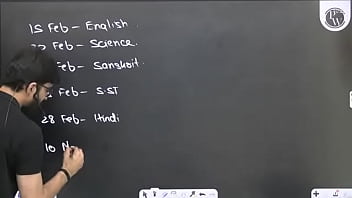 15 Feb - English
Feb - Science
Feb - Sanskrit
Feb - S.ST
28 Feb - Hindi
10